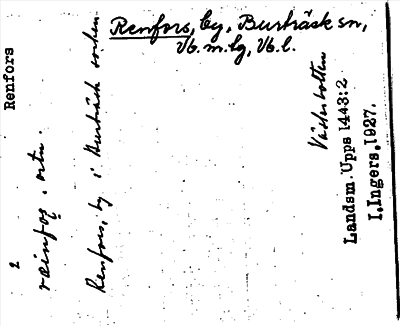 Renfors, by, Burträsk sn,
Vb. m. lg, Vb. l.
Renfors
2
ræinfoṣ . ortn.
Renfors, by i Burträsk socken.
Västerbotten
Landsm. Upps 1443:2
I. Ingers, 1927.